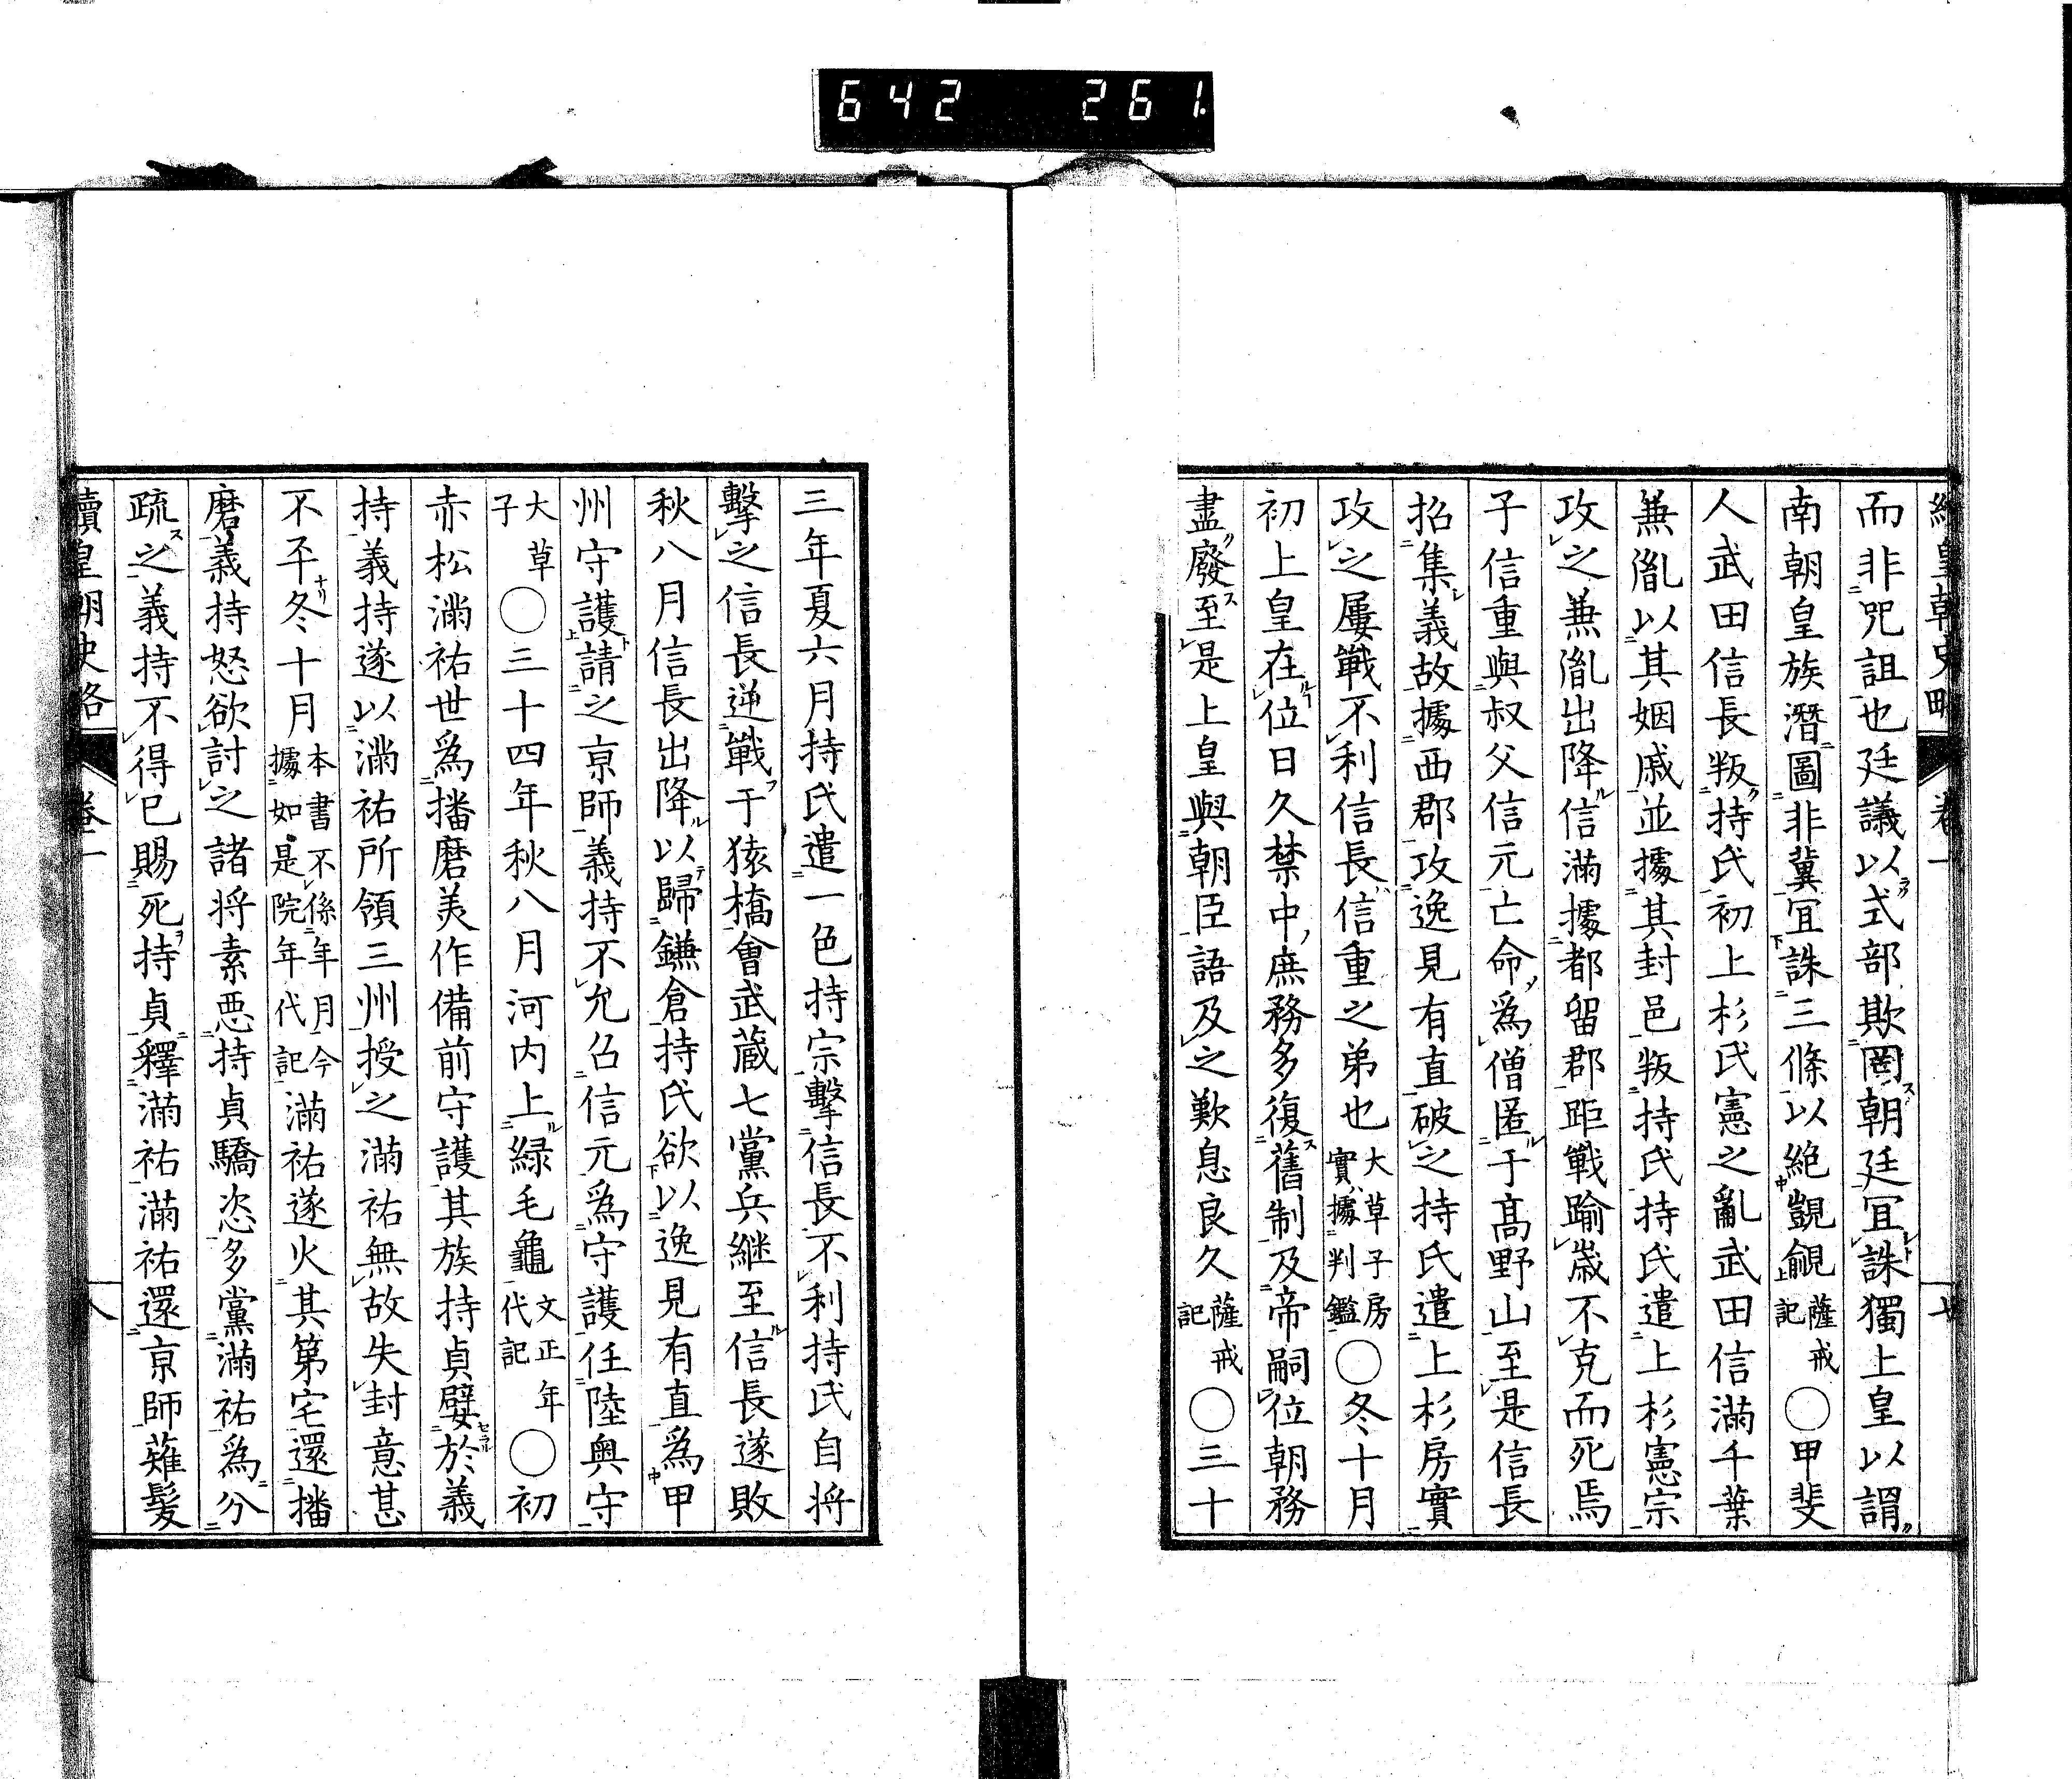 642 261
續皇朝史略 卷一 七
而非咒詛也廷議以式部欺罔朝廷宜誅獨上皇以謂
南朝皇族潛圖非冀宜誅三條以絶覬覦薩戒記〇甲斐
人武田信長叛持氏初上杉氏憲之亂武田信滿千葉
兼胤以其姻戚並據其封邑叛持氏持氏遣上杉憲宗
攻之兼胤出降信滿據都留郡距戰踰歲不克而死焉
子信重與叔父信元亡命爲僧匿于髙野山至是信長
招集義故據西郡攻逸見有直破之持氏遣上杉房實
攻之屢戰不利信長信重之弟也大草子房實據判鑑〇冬十月
初上皇在位日久禁中庶務多復舊制及帝嗣位朝務
盡廢至是上皇與朝臣語及之歎息良久薩戒記〇三十
三年夏六月持氏遣一色持宗擊信長不利持氏自將
擊之信長逆戰于猿橋會武藏七黨兵継至信長遂敗
秋八月信長出降以歸鎌倉持氏欲以逸見有直爲甲
州守護請之京師義持不允召信元爲守護任陸奥守
大草子〇三十四年秋八月河内上緑毛龜文正年代記〇初
赤松滿祐世爲播磨美作備前守護其族持貞嬖於義
持義持遂以滿祐所領三州授之滿祐無故失封意甚
不平冬十月本書不係年月今據如是院年代記滿祐遂火其第宅還播
磨義持怒欲討之諸将素惡持貞驕恣多黨滿祐爲分
疏之義持不得已賜死持貞釋滿祐滿祐還京師薙髪
續皇朝史略 卷一 八